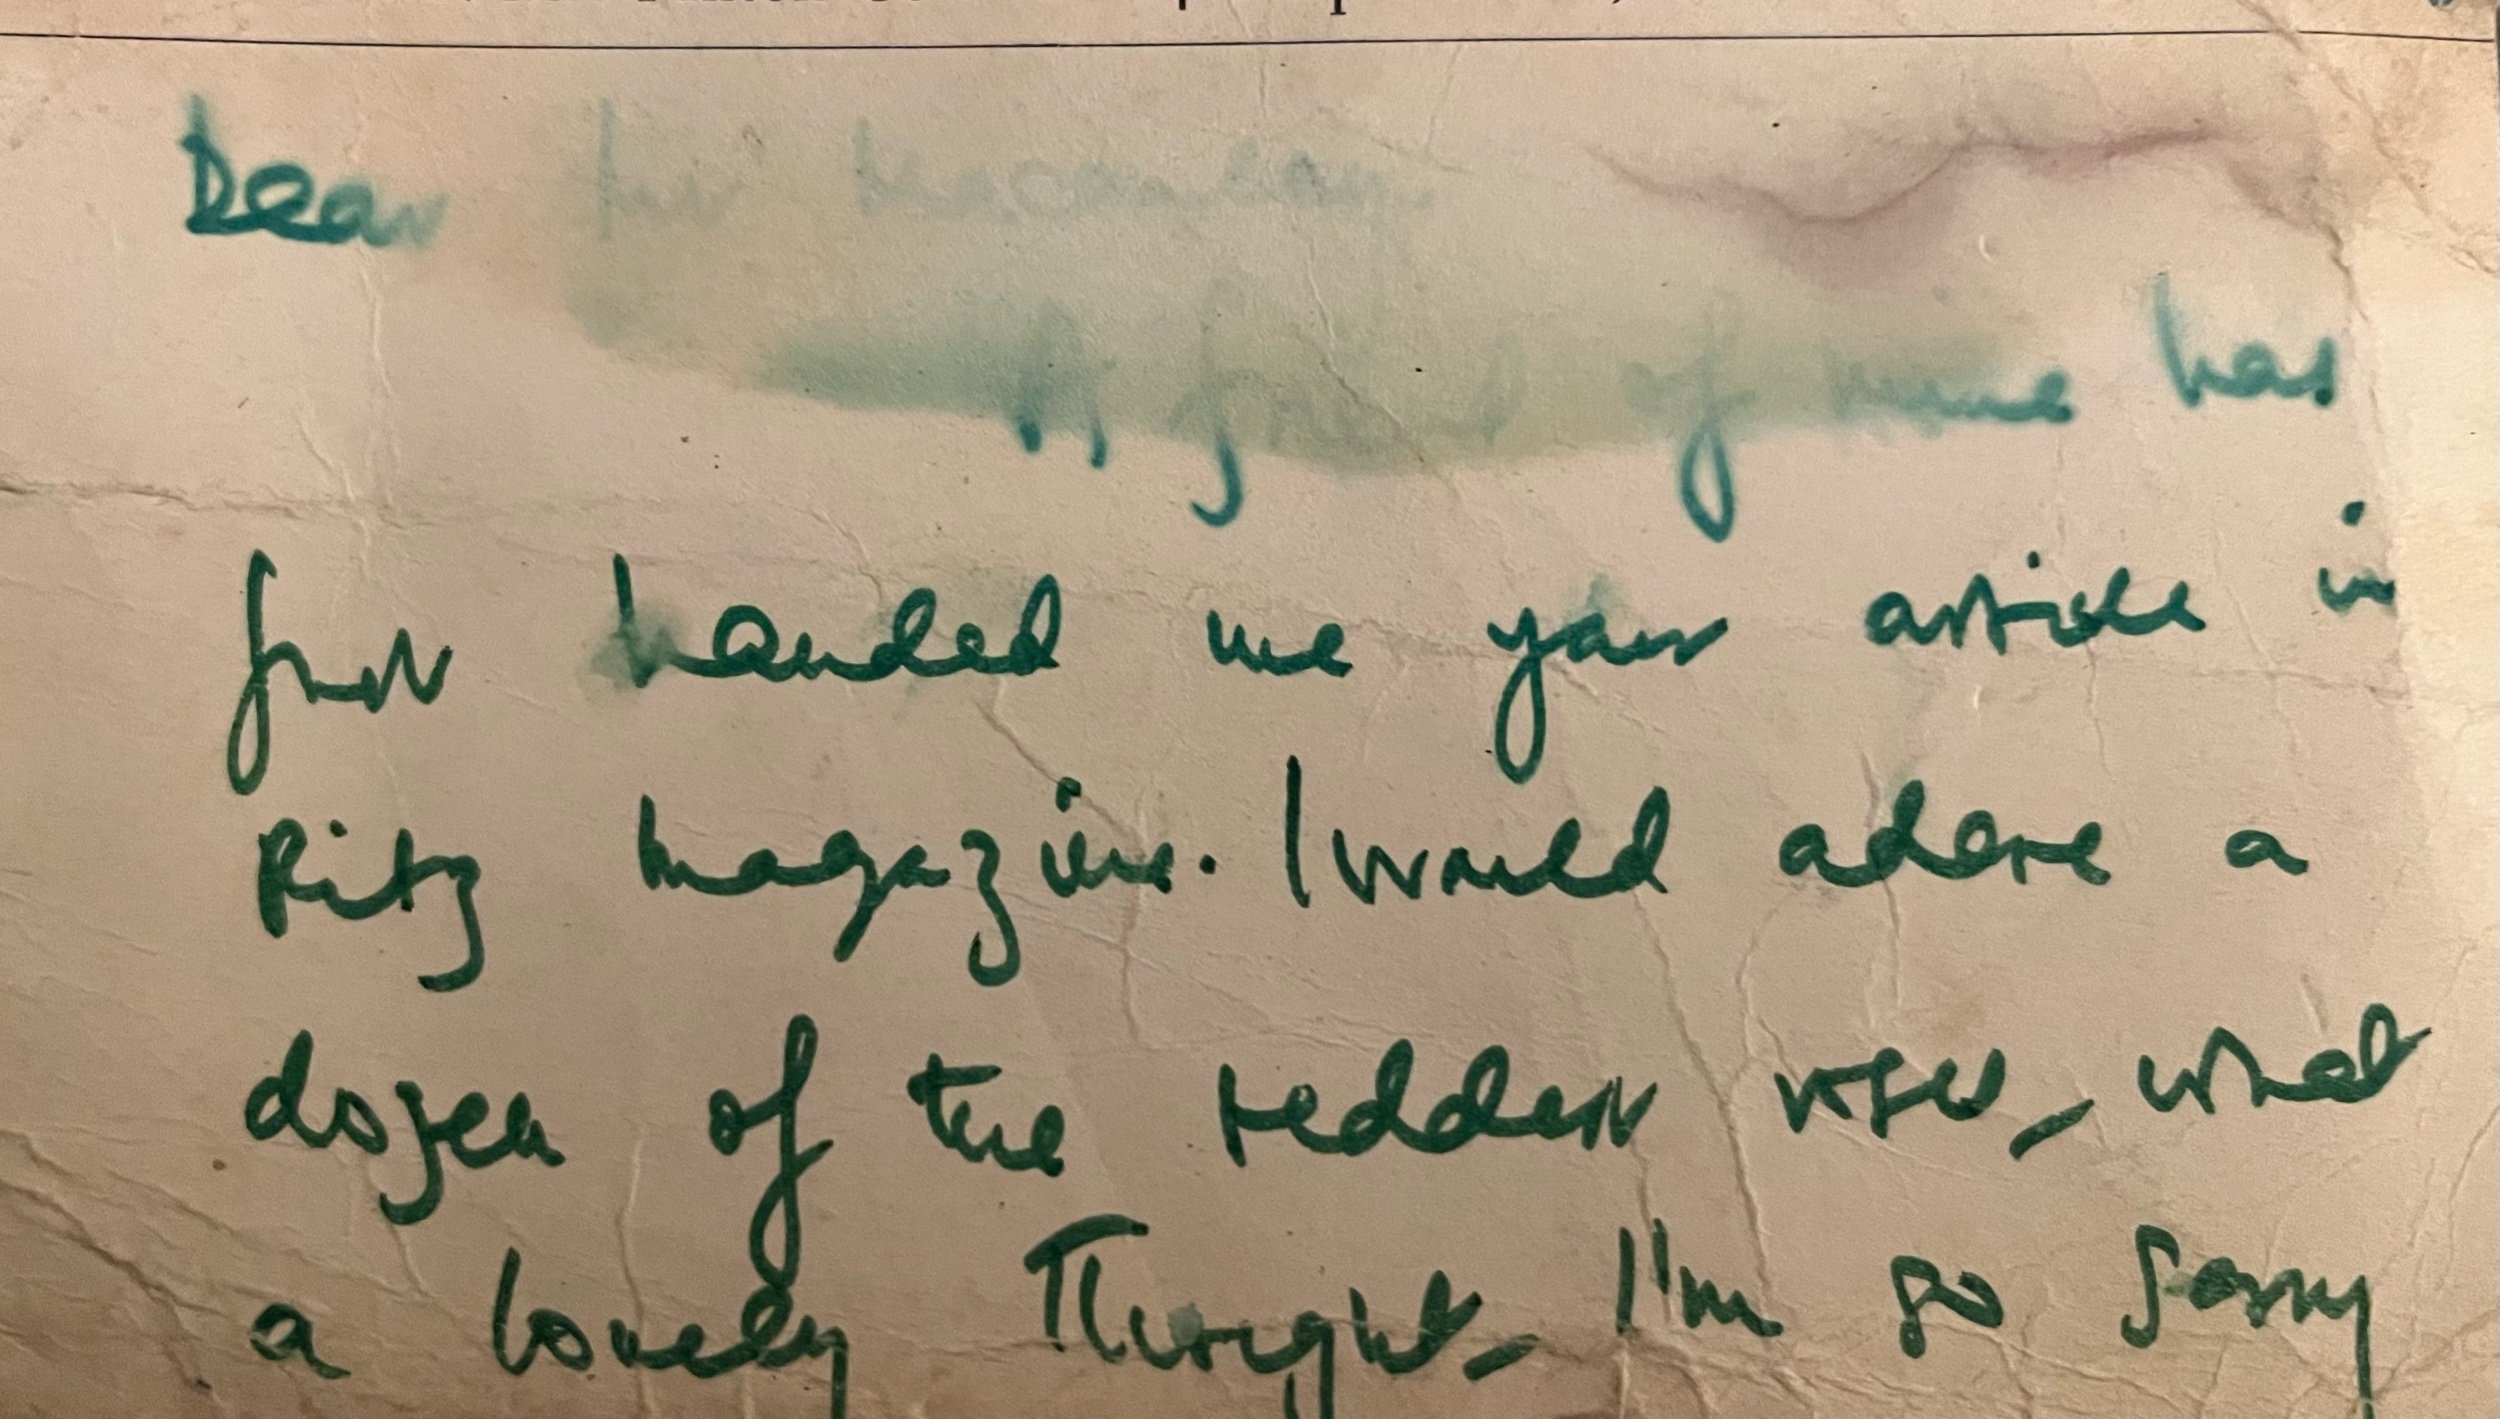 Dear
A friend of mine has
just handed me your article in
Ritz magazine. I would adore a
dozen of the reddest roses, what
a lovely Thought. I'm so sorry